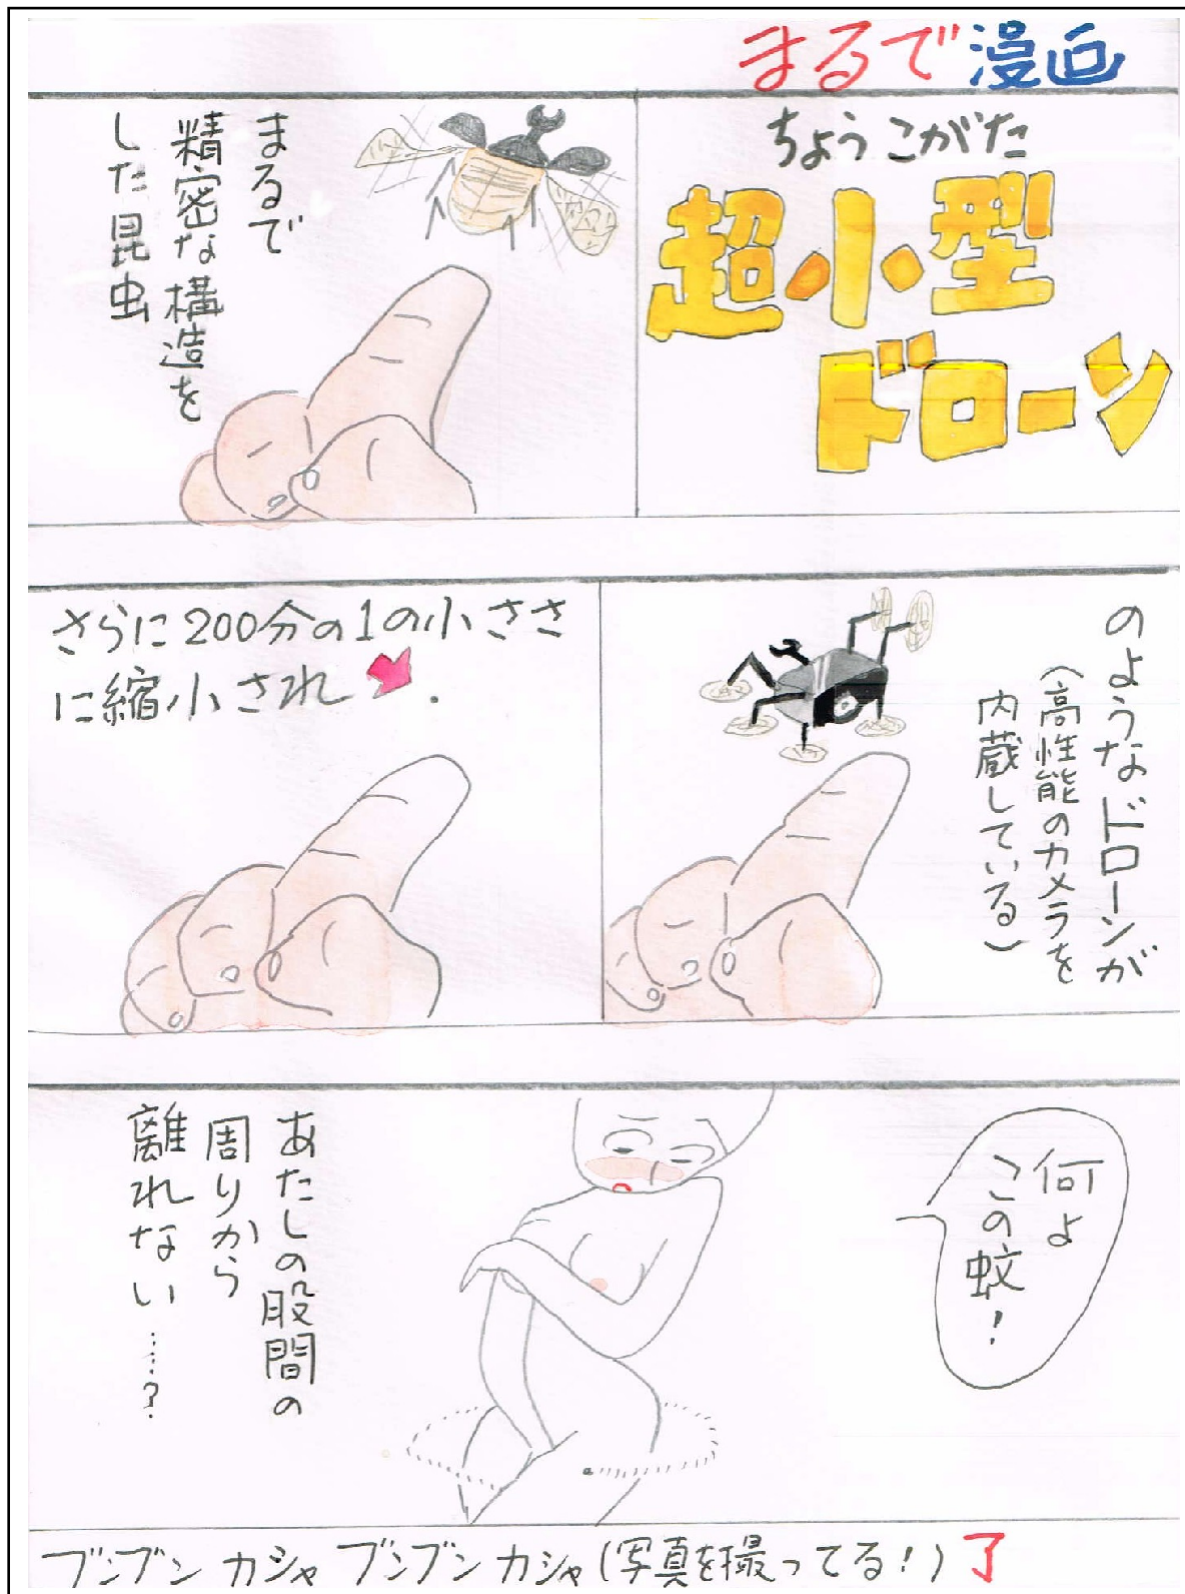 まるで漫画
ちょうこがた
超小型
ドローン
まるで
精密な構造を
した昆虫
のようなドローンが
(高性能のカメラを
内蔵している)
さらに200分の1の小ささ
に縮小され.
何よ
この蚊!
あたしの股間の
周りから
離れない……?
ブンブン カシャ ブンブン カシャ(写真を撮ってる!)了